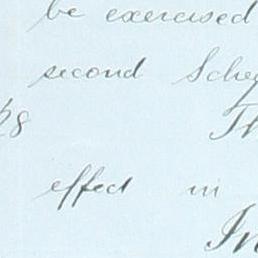 be exercised
second Sche
28 Th
effect in
In